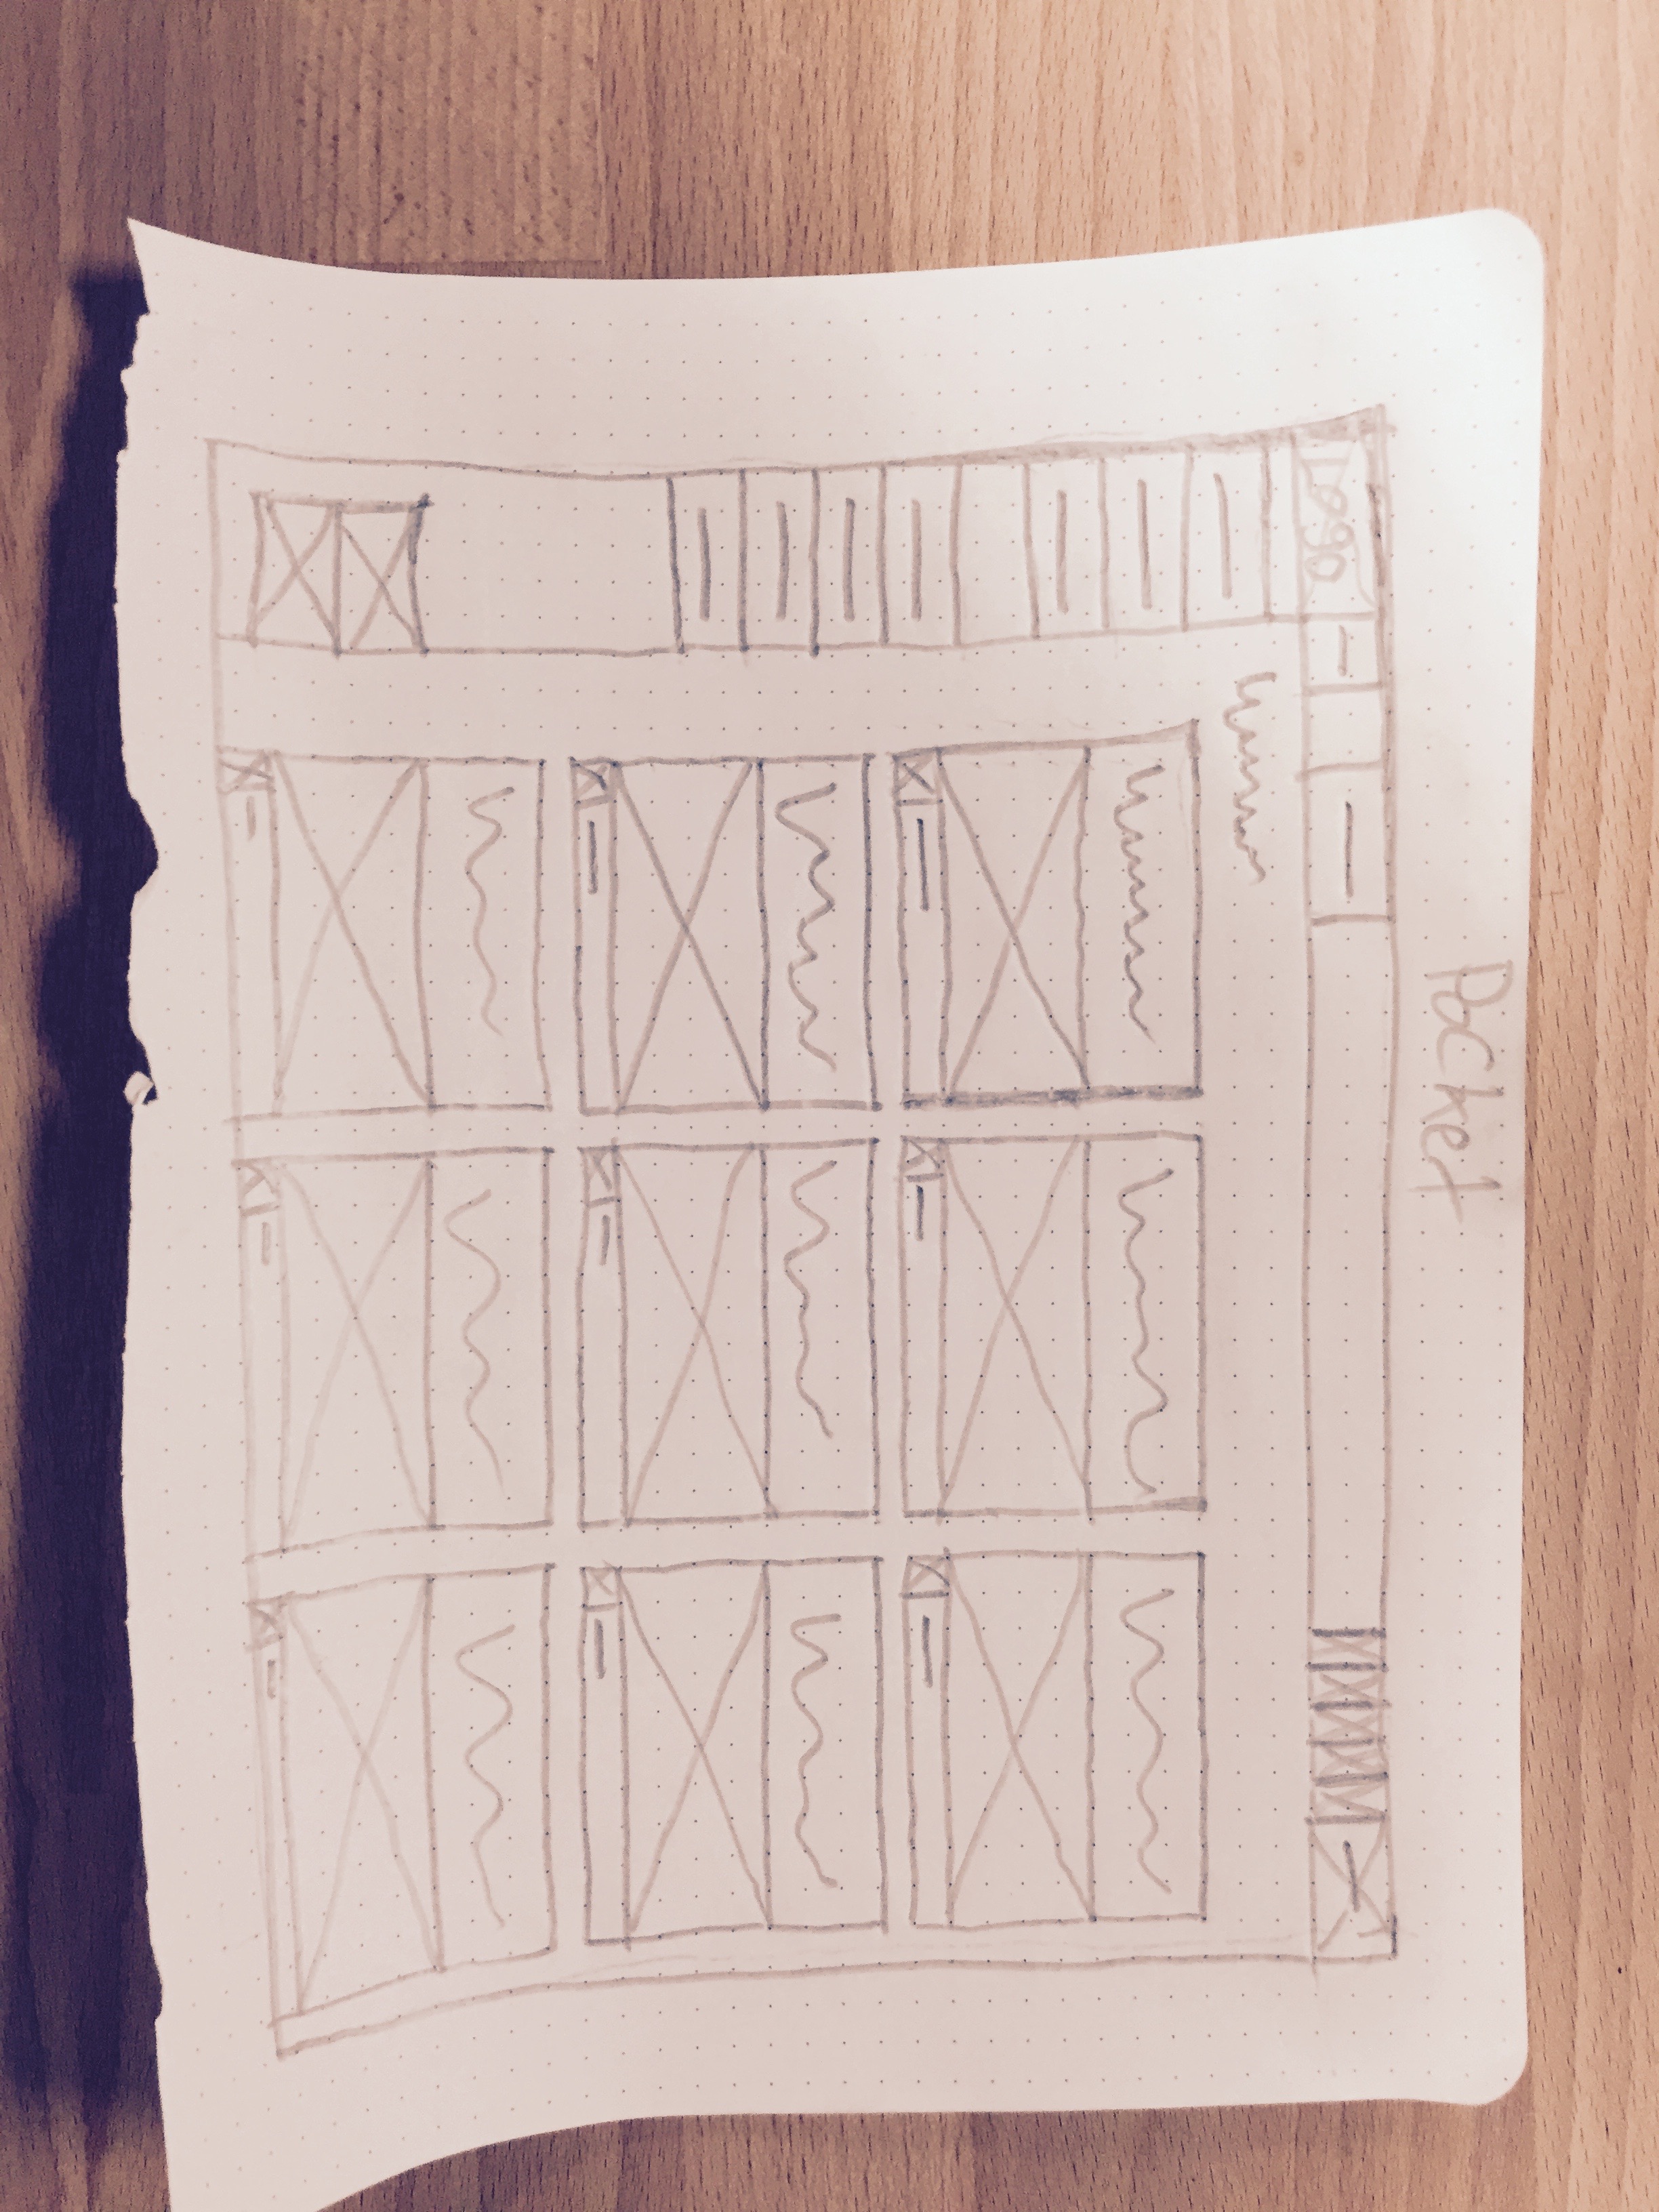 Pocket
Logo